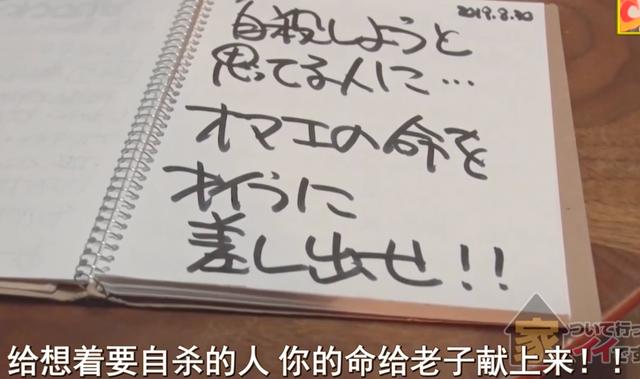 2019.8.30
自殺しようと
思ってる人に…
オマエの命を
オイらに
差し出せ!!
家 ついて行っ
イイです
给想着要自杀的人 你的命给老子献上来！！